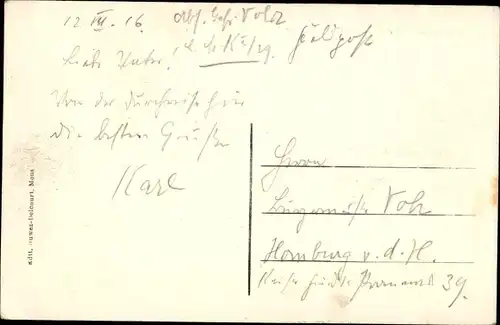 12 VII. 16.
Abs. Gefr. Volz
Feldpost
Liebe Vater!
Von der Durchreise hier
die besten Grüße
Karl
Herrn
Volz
Homburg v. d. H.
Promenade 39.
Edit. Mons